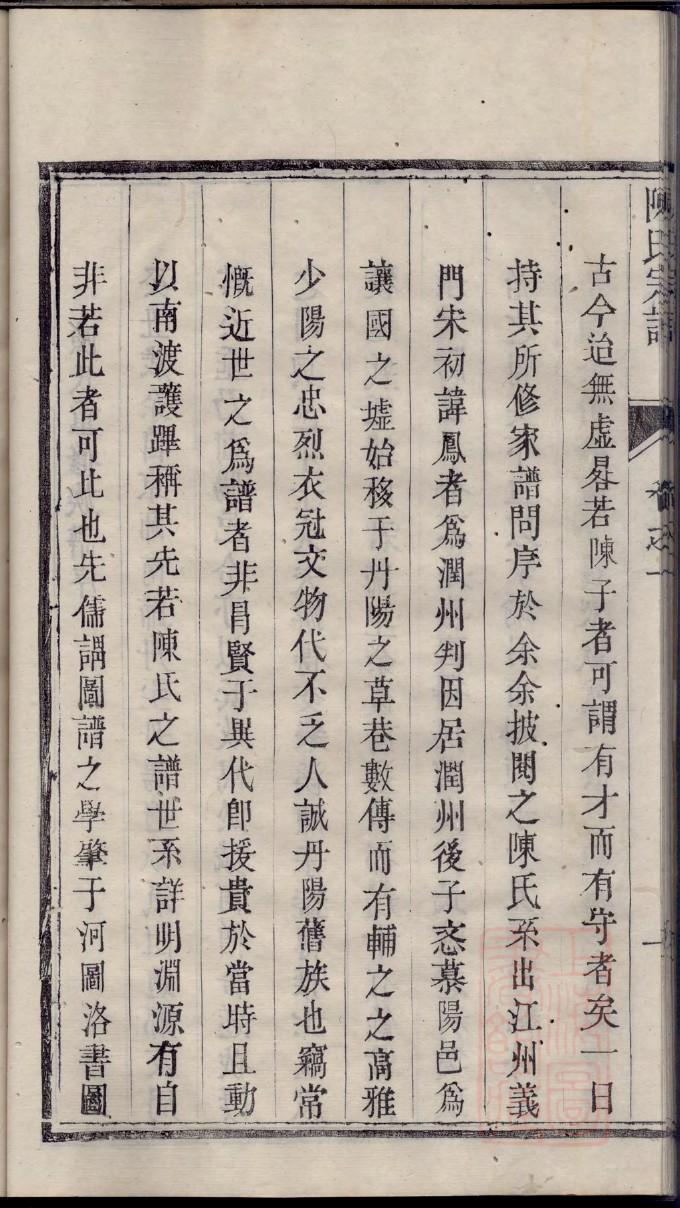 陳氏宗譜
卷之一
古今迨無虚畧若陳子者可謂有才而有守者矣一日
持其所修家譜問序於余余披閱之陳氏系出江州義
門宋初諱鳳者爲潤州判因居潤州後子忞慕陽邑爲
讓國之墟始移于丹陽之草巷數傳而有輔之之高雅
少陽之忠烈衣冠文物代不乏人誠丹陽舊族也竊常
慨近世之爲譜者非冐賢于異代卽援貴於當時且動
以南渡護蹕稱其先若陳氏之譜世系詳明淵源有自
非若此者可比也先儒謂圖譜之學肇于河圖洛書圖